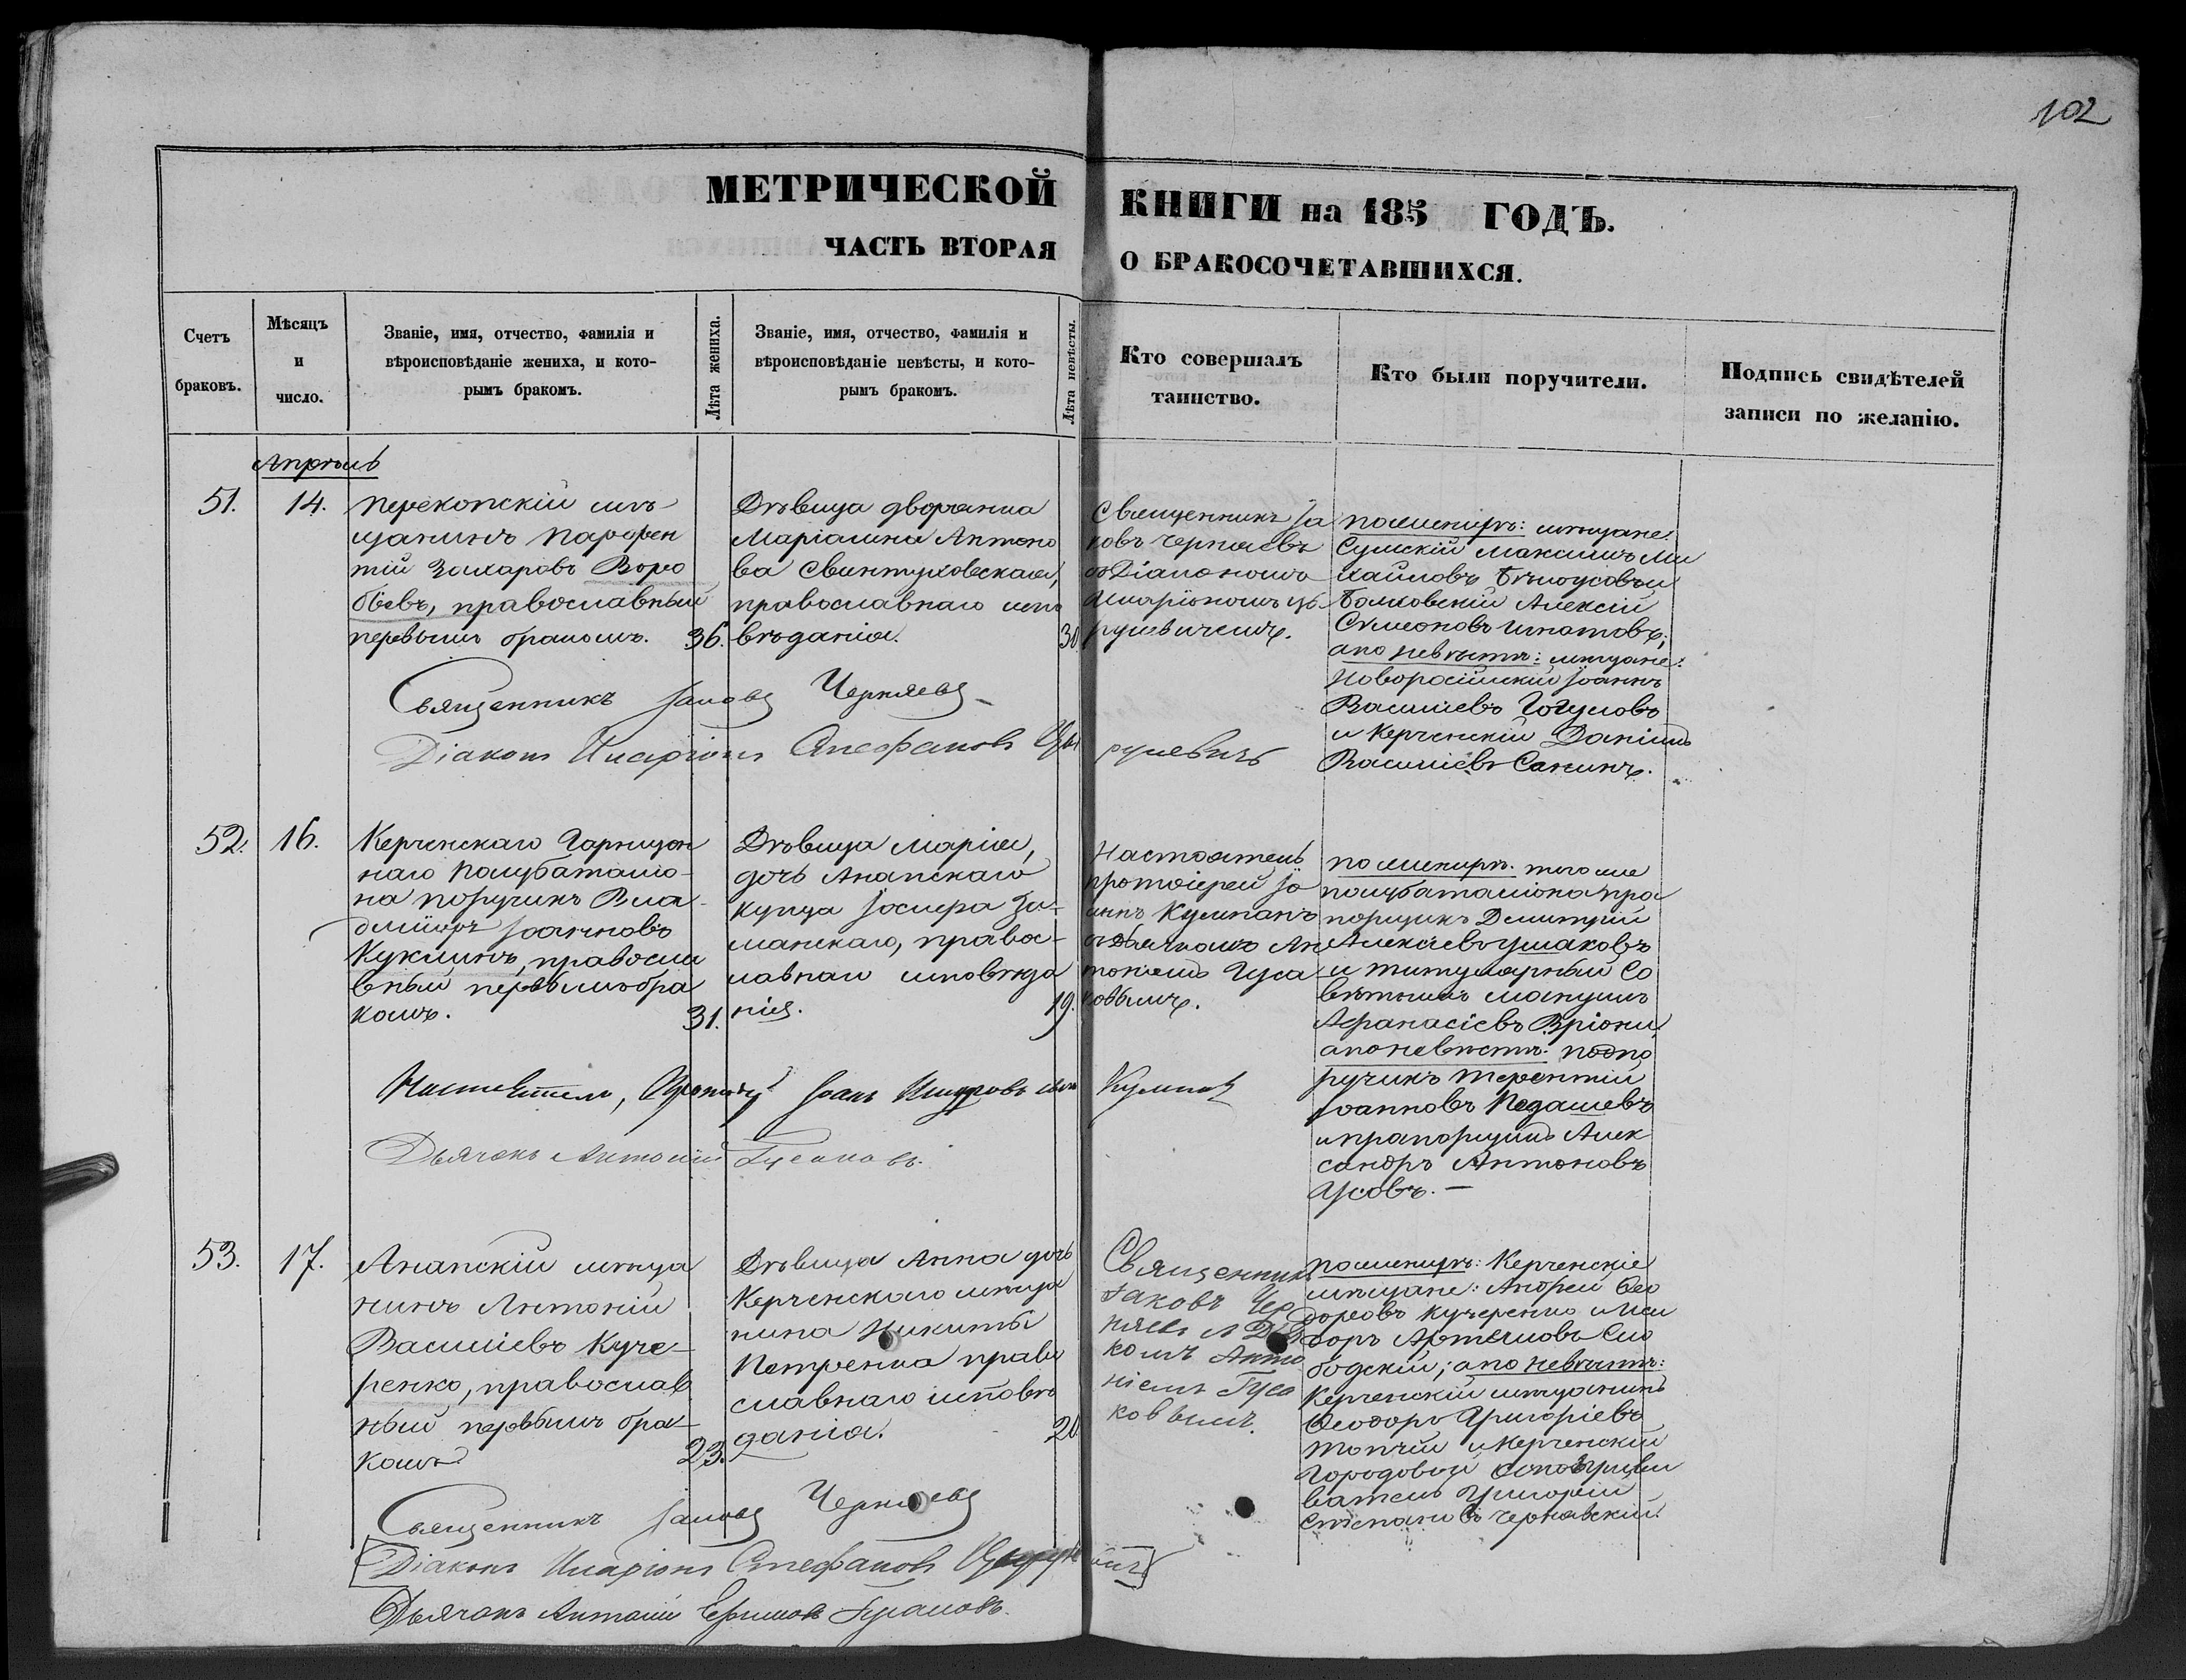 102
МЕТРИЧЕСКОЙ КНИГИ на 185 ГОДЪ.
ЧАСТЬ ВТОРАЯ О БРАКОСОЧЕТАВШИХСЯ.
Счетъ
браковъ.
Мѣсяцъ
и
число.
Званіе, имя, отчество, фамилія и
вѣроисповѣданіе жениха, и кото-
рымъ бракомъ.
Лѣта жениха.
Званіе, имя, отчество, фамилія и
вѣроисповѣданіе невѣсты, и кото-
рымъ бракомъ.
Лѣта невѣсты.
Кто совершалъ
таинство.
Кто были поручители.
Подпись свидѣтелей
записи по желанію.
Апрѣль
51.
14.
Перекопскій мѣ-
щанинъ Парфен
тій Захаровъ Воро
бьевъ, православный
первымъ бракомъ.
36.
Дѣвица дворянка
Маріанна Антоно
ва Свентуховская,
православнаго испо
вѣданія.
30
Священникъ Іа
ковъ Черняевъ
съ Діакономъ
Иларіономъ Цы-
рулевичемъ.
по женихѣ: мѣщане:
Сумскій Максимъ Ми
хайловъ Бѣлоусовъ и
Болховскій Алексій
Сѵмеоновъ Игнатовъ;
а по невѣстѣ: мѣщане:
Новоросійскій Іоаннъ
Василіевъ Гогуловъ
и Керченскій Даніилъ
Василіевъ Санинъ.
Священникъ Іаковъ Черняевъ
Діаконъ Иларіонъ Стефановъ Цырулевичъ
52.
16.
Керченскаго Гарнизон
наго Полубаталіо-
на поручикъ Вла-
диміръ Іоанновъ
Куклинъ, правосла
вный первымъ бра
комъ.
31.
Дѣвица Марія,
дочь Анапскаго
купца Іосифа За-
манскаго, правос-
лавнаго исповѣда
нія.
19.
Настоятель
протоіерей Іо
аннъ Кумпанъ
съ дьячкомъ Ан
тоніемъ Гуса
ковымъ.
по женихѣ: того же
полубаталіона пра
порщикъ Димитрій
Алексіевъ Ушаковъ
и титулярный Со
вѣтникъ
Афанасіевъ Вріони,
а по невѣстѣ: подпо
ручикъ Терентій
Іоанновъ Педашевъ
и прапорщикъ Алек
сандръ Антоновъ
Усовъ. —
Настоятель, Протоіерей Іоанъ Кумпан
Дьячокъ Антоній Гусаковъ.
53.
17.
Анапскій мѣща
нинъ Антоній
Василіевъ Куче-
ренко, православ
ный первымъ бра-
комъ
23.
Дѣвица Анна дочь
Керченскаго мѣща
нина Никиты
Петренка право
славнаго исповѣ
данія.
20
Священникъ
Іаковъ Чер
няевъ съ Дья
комъ Анто
ніемъ Гуса
ковымъ.
по женихѣ: Керченскіе
мѣщане: Андрей Ѳео
доровъ Кучеренко и Иси
доръ Артемовъ Сло
бодскій; а по невѣстѣ:
Керченскій мѣщанинъ
Ѳеодоръ Григоріевъ
Топчій и Керченскій
Городовой Оспоприви
ватель Григорій
Стефановъ Чернавскій.
Священникъ Іаковъ Черняевъ
Діаконъ Иларіонъ Стефановъ
Дьячокъ Антоній Ефимовъ Гусаковъ.